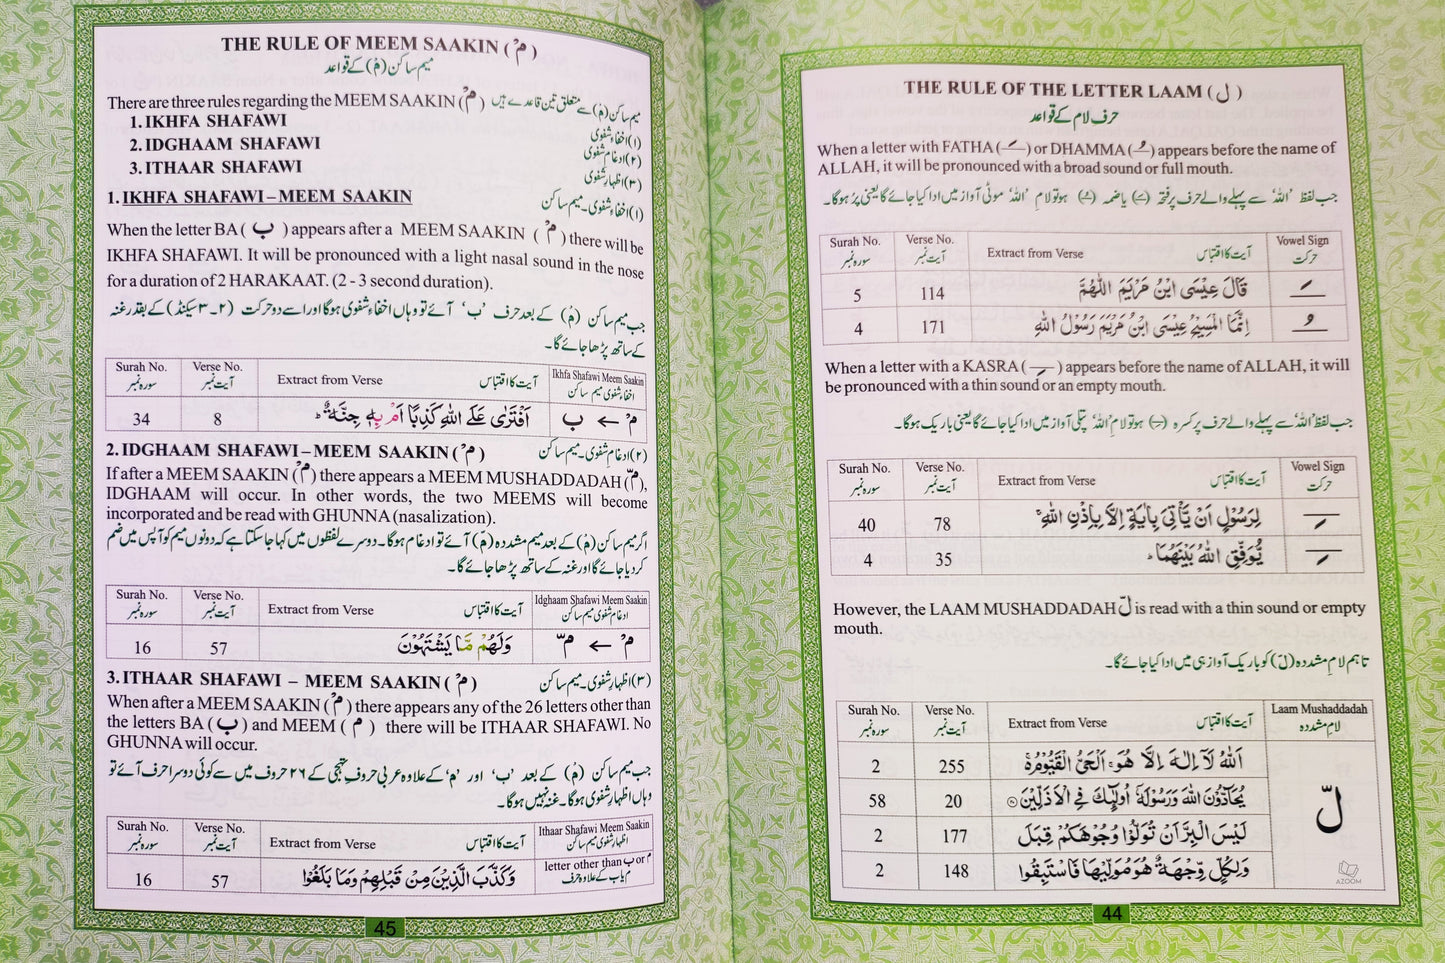 THE RULE OF THE LETTER LAAM ( ل )
حرف لام کے قواعد
When a letter with FATHA ( ـَ ) or DHAMMA ( ـُ ) appears before the name of
ALLAH, it will be pronounced with a broad sound or full mouth.
جب لفظ ’اللہ‘ سے پہلے والے حرف پر فتحہ (ـَ) یا ضمہ (ـُ) ہو تو لامِ ’اللہ‘ موٹی آواز میں ادا کیا جائے گا یعنی پڑ ہوگا۔
Surah No. Verse No. Extract from Verse آیت کا اقتباس Vowel Sign
سورہ نمبر آیت نمبر حرکت
5 114 قَالَ عِيْسَى ابْنُ مَرْيَمَ اللّٰهُمَّ ـَ
4 171 اِنَّمَا الْمَسِيْحُ عِيْسَى ابْنُ مَرْيَمَ رَسُوْلُ اللّٰهِ ـُ
When a letter with a KASRA ( ـِ ) appears before the name of ALLAH, it will
be pronounced with a thin sound or an empty mouth.
جب لفظ ’اللہ‘ سے پہلے والے حرف پر کسرہ (ـِ) ہو تو لامِ ’اللہ‘ پتلی آواز میں ادا کیا جائے گا یعنی باریک ہوگا۔
Surah No. Verse No. Extract from Verse آیت کا اقتباس Vowel Sign
سورہ نمبر آیت نمبر حرکت
40 78 لِرَسُوْلٍ اَنْ يَّاْتِيَ بِاٰيَةٍ اِلَّا بِاِذْنِ اللّٰهِ ۚ ـِ
4 35 يُّوَفِّقِ اللّٰهُ بَيْنَهُمَا ؕ ـِ
However, the LAAM MUSHADDADAH لّ is read with a thin sound or empty
mouth.
تاہم لامِ مشددہ (لّ) کو باریک آواز ہی میں ادا کیا جائے گا۔
Surah No. Verse No. Extract from Verse آیت کا اقتباس Laam Mushaddadah
سورہ نمبر آیت نمبر لامِ مشددہ
2 255 اَللّٰهُ لَاۤ اِلٰهَ اِلَّا هُوَ ۚ اَلْحَيُّ الْقَيُّوْمُ ۚ۬
58 20 يُحَآدُّوْنَ اللّٰهَ وَرَسُوْلَهٗۤ اُولٰٓئِكَ فِي الْاَذَلِّيْنَ
لّ
2 177 لَيْسَ الْبِرَّ اَنْ تُوَلُّوْا وُجُوْهَكُمْ قِبَلَ
2 148 وَلِكُلٍّ وِّجْهَةٌ هُوَ مُوَلِّيْهَا فَاسْتَبِقُوا
AZOOM
44
THE RULE OF MEEM SAAKIN ( مْ )
میم ساکن (مْ) کے قواعد
There are three rules regarding the MEEM SAAKIN ( مْ ) میم ساکن (مْ) سے متعلق تین قاعدے ہیں
1. IKHFA SHAFAWI (۱) اخفاءِ شفوی
2. IDGHAAM SHAFAWI (۲) ادغامِ شفوی
3. ITHAAR SHAFAWI (۳) اظہارِ شفوی
1. IKHFA SHAFAWI – MEEM SAAKIN (۱) اخفاءِ شفوی۔ میم ساکن
When the letter BA ( ب ) appears after a MEEM SAAKIN ( مْ ) there will be
IKHFA SHAFAWI. It will be pronounced with a light nasal sound in the nose
for a duration of 2 HARAKAAT. (2 - 3 second duration).
جب میم ساکن (مْ) کے بعد حرف ’ب‘ آئے تو وہاں اخفاءِ شفوی ہوگا اور اسے دو حرکت (۲۔۳ سیکنڈ) کے بقدر غنہ
کے ساتھ پڑھا جائے گا۔
Surah No. Verse No. Extract from Verse آیت کا اقتباس Ikhfa Shafawi Meem Saakin
سورہ نمبر آیت نمبر اخفاءِ شفوی میم ساکن
34 8 اَفْتَرٰى عَلَى اللّٰهِ كَذِبًا اَمْ بِهٖ جِنَّةٌ ؕ مْ ← ب
2. IDGHAAM SHAFAWI – MEEM SAAKIN ( مْ ) (۲) ادغامِ شفوی۔ میم ساکن
If after a MEEM SAAKIN ( مْ ) there appears a MEEM MUSHADDADAH (مّ),
IDGHAAM will occur. In other words, the two MEEMS will become
incorporated and be read with GHUNNA (nasalization).
اگر میم ساکن (مْ) کے بعد میم مشددہ (مّ) آئے تو ادغام ہوگا۔ دوسرے لفظوں میں کہا جا سکتا ہے کہ دونوں میم کو آپس میں ضم
کر دیا جائے گا اور غنہ کے ساتھ پڑھا جائے گا۔
Surah No. Verse No. Extract from Verse آیت کا اقتباس Idghaam Shafawi Meem Saakin
سورہ نمبر آیت نمبر ادغامِ شفوی میم ساکن
16 57 وَلَهُمْ مَّا يَشْتَهُوْنَ مْ ← مّ
3. ITHAAR SHAFAWI – MEEM SAAKIN ( مْ ) (۳) اظہارِ شفوی۔ میم ساکن
When after a MEEM SAAKIN ( مْ ) there appears any of the 26 letters other than
the letters BA ( ب ) and MEEM ( م ) there will be ITHAAR SHAFAWI. No
GHUNNA will occur.
جب میم ساکن (مْ) کے بعد ’ب‘ اور ’م‘ کے علاوہ عربی حروف تہجی کے ۲۶ حروف میں سے کوئی دوسرا حرف آئے تو
وہاں اظہارِ شفوی ہوگا۔ غنہ نہیں ہوگا۔
Surah No. Verse No. Extract from Verse آیت کا اقتباس Ithaar Shafawi Meem Saakin
سورہ نمبر آیت نمبر اظہارِ شفوی میم ساکن
16 57 وَكَذَّبَ الَّذِيْنَ مِنْ قَبْلِهِمْ وَمَا بَلَغُوْا letter other than ب or م
م یا ب کے علاوہ حرف
45